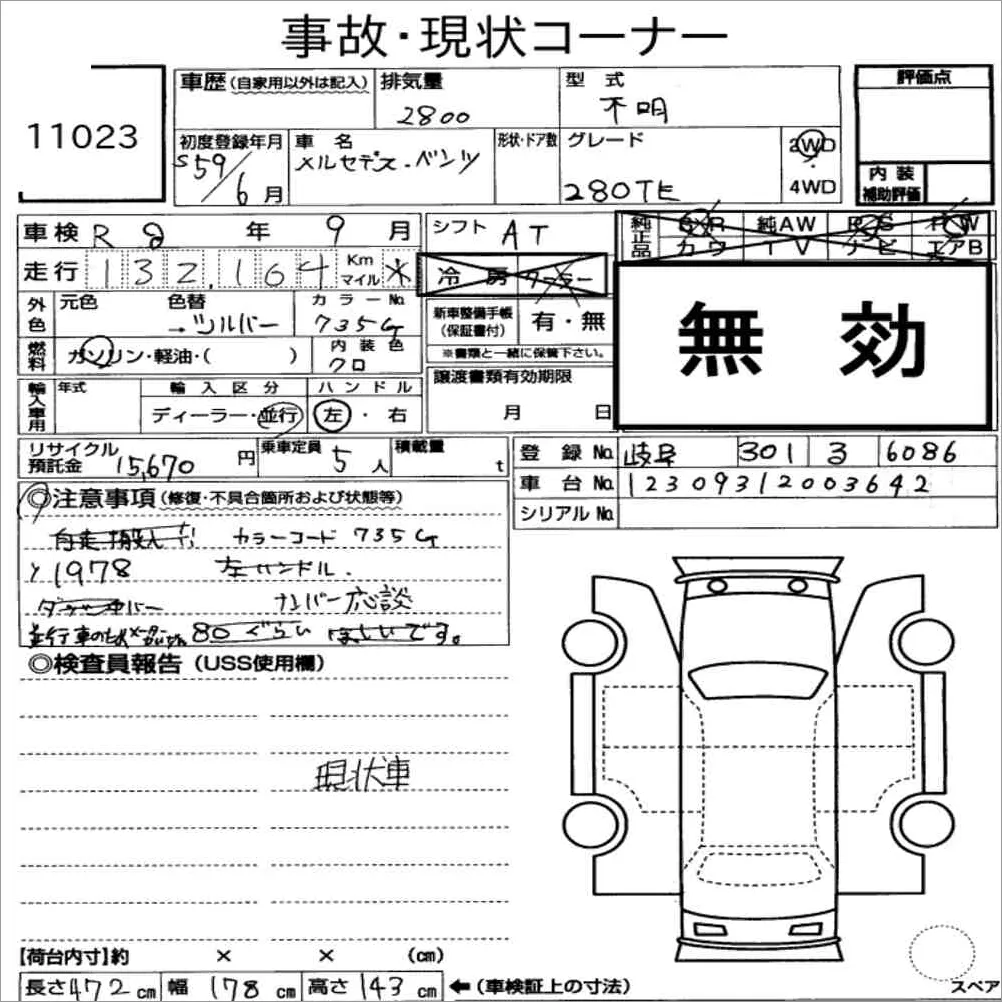 事故・現状コーナー
11023
車歴(自家用以外は記入)
排気量
2800
型式
不明
評価点
初度登録年月
S59/6月
車名
メルセデス・ベンツ
形状・ドア数
グレード
280TE
2WD
・
4WD
内装
補助評価
車検 R2年9月
シフト AT
純正品
S・R 純AW P・S P・W
カワ TV ナビ エアB
走行 132,164 Km マイル ＊
冷房 クーラー
外色
元色 色替
→シルバー
カラーNo.
735G
新車整備手帳
(保証書付)
有・無
※書類と一緒に保管下さい。
無効
燃料
ガソリン・軽油・( )
内装色
クロ
輸入車用
年式
輸入区分
ディーラー・並行
ハンドル
左・右
譲渡書類有効期限
月 日
リサイクル
預託金
15,670円
乗車定員
5人
積載量
t
登録No. 岐阜 301 3 6086
車台No. 12309312003642
シリアルNo.
◎注意事項(修復・不具合箇所および状態等)
自走搬入 カラーコード 735G
1978 左ハンドル.
ナンバー応談
80ぐらいほしいです。
◎検査員報告(USS使用欄)
現状車
【荷台内寸】約 × × (cm)
長さ472cm 幅178cm 高さ143cm
←(車検証上の寸法)
スペア